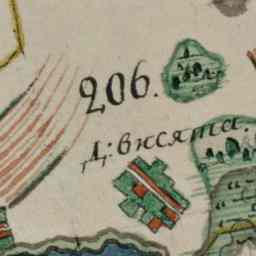 206.
Д: вксята.